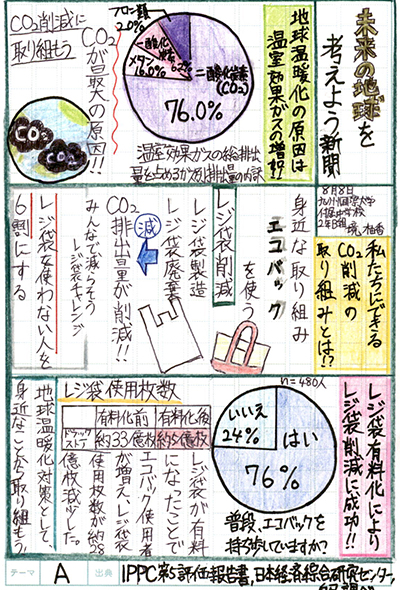 未来の地球を
考えよう新聞
8月8日
2年B組
地球温暖化の原因は
温室効果ガスの増加!!
フロン類
2.0%
一酸化二窒素
6.2%
メタン
16.0%
二酸化炭素
(CO₂)
76.0%
温室効果ガスの総排出
量に占めるガス別排出量の内訳
CO₂削減に
取り組もう
CO₂が最大の原因!!
CO₂
CO₂
CO₂
私たちにできる
CO₂削減の
取り組みとは!?
身近な取り組み
エコバックを使う
レジ袋削減
レジ袋製造
レジ袋廃棄
減
CO₂
排出量が削減!!
みんなで減らそう
レジ袋チャレンジ
レジ袋を使わない人を
6割にする
レジ袋有料化により
レジ袋削減に成功!!
n=480人
はい
76%
いいえ
24%
普段、エコバックを
持ち歩いていますか?
レジ袋使用枚数
有料化前
有料化後
ドラッグストア
約33億枚
約5億枚
レジ袋が有料
になったことで
エコバック使用者
が増え、レジ袋
使用枚数が約28
億枚減少した。
地球温暖化対策として、
身近なことから取り組もう!
テーマ
A
出典
IPPC第5評価報告書,日本経済綜合研究センター,